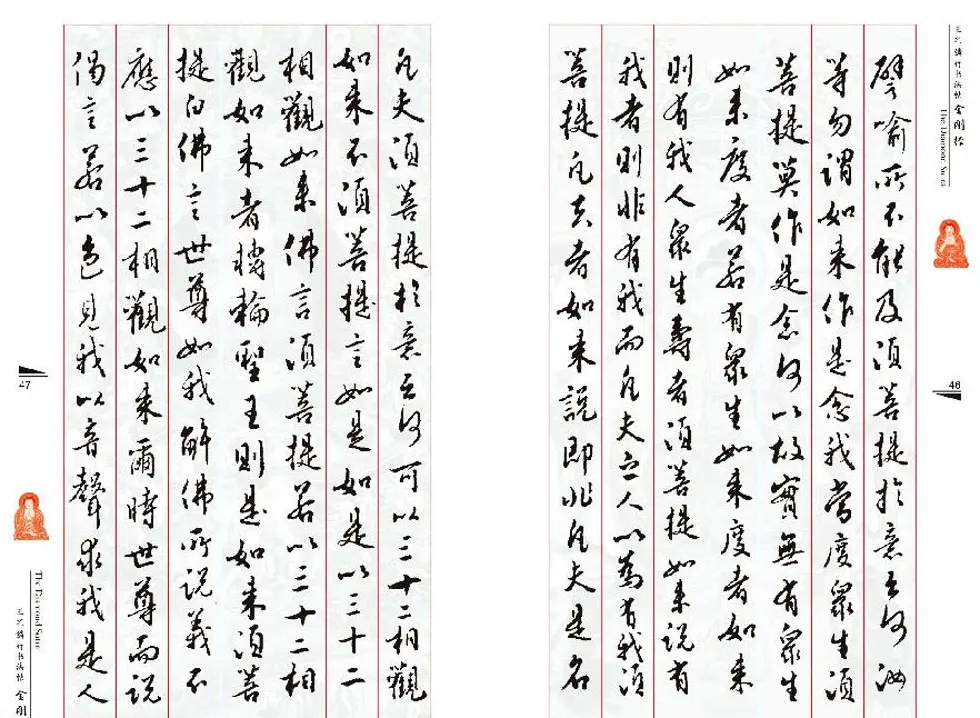 金刚经
The Diamond Sutra
46
譬喻所不能及須菩提於意云何汝
等勿謂如來作是念我當度眾生須
菩提莫作是念何以故實無有眾生
如來度者若有眾生如來度者如來
則有我人眾生壽者須菩提如來說有
我者則非有我而凡夫之人以為有我須
菩提凡夫者如來說即非凡夫是名
凡夫須菩提於意云何可以三十二相觀
如來不須菩提言如是如是以三十二
相觀如來佛言須菩提若以三十二相
觀如來者轉輪聖王則是如來須菩
提白佛言世尊如我解佛所說義不
應以三十二相觀如來爾時世尊而說
偈言若以色見我以音聲求我是人
47
The Diamond Sutra
金刚